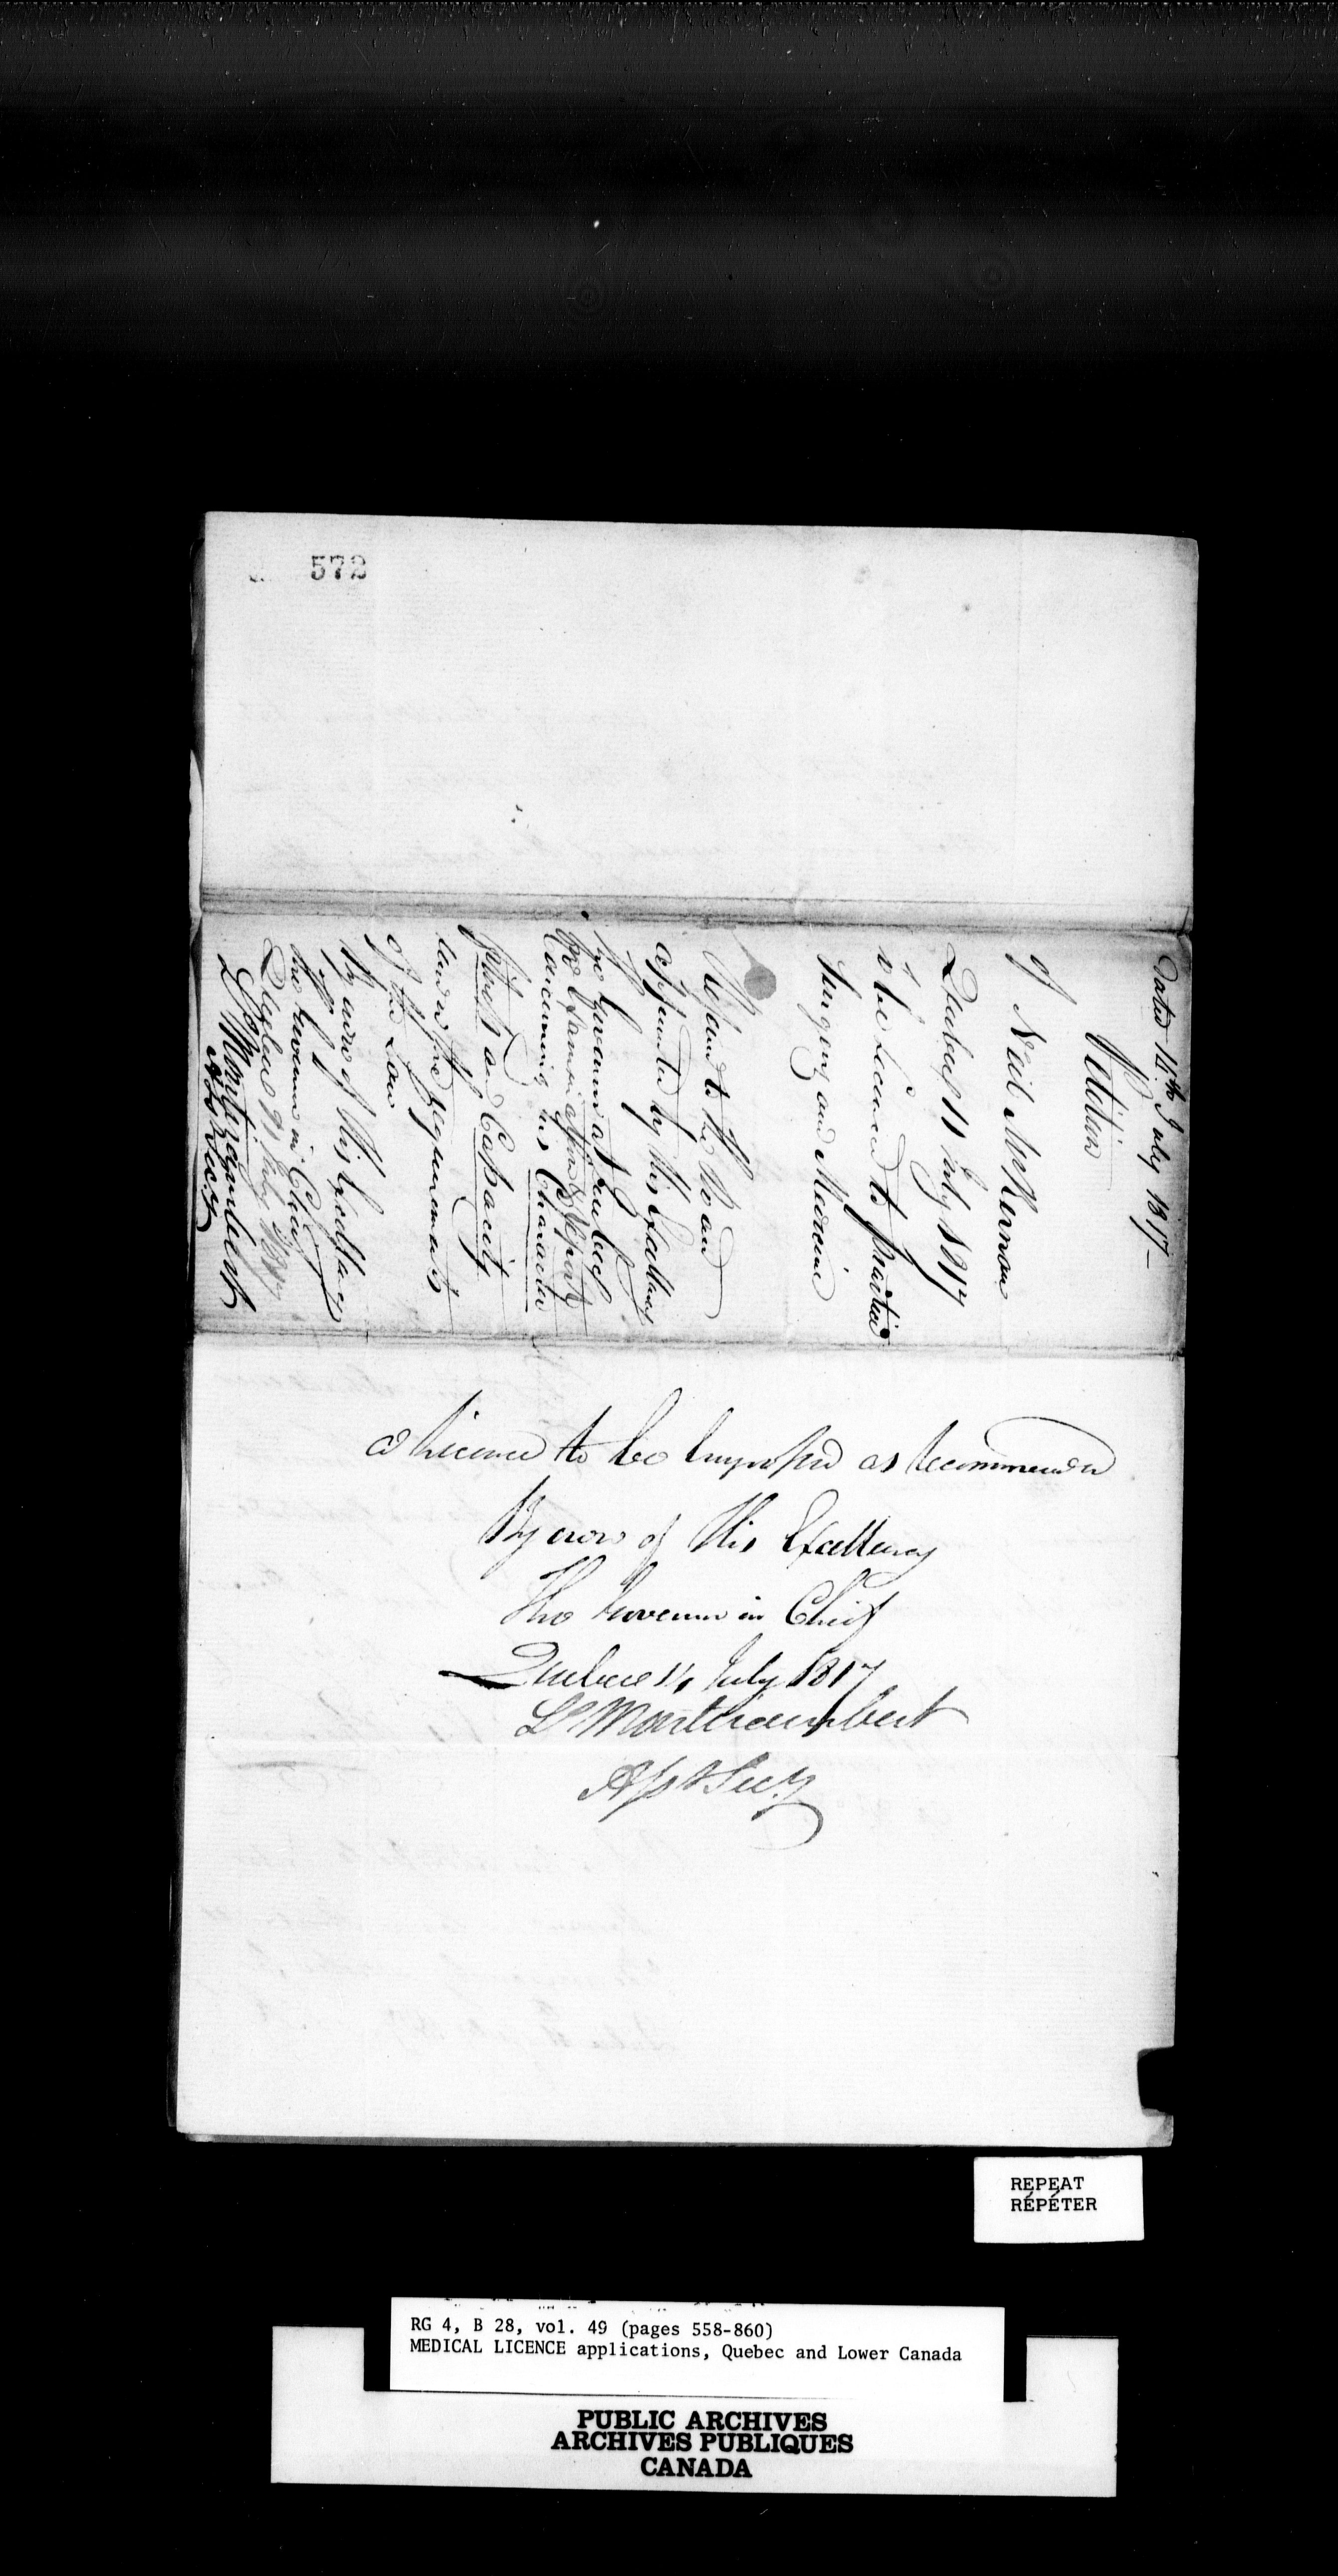 572
Dated 14th July 1817
Petition
of Neil McKernon
Quebec 11 July 1817
to be Licenced to practice
Surgery and Medicine
Refered to the Board
appointed by His Excellency
the Governor at Quebec
for Examination & Report
Concerning his Character
Fitness and Capacity
under the Requirements
of the Law
By order of His Excellency
the Governor in Chief
Quebec July
Ls Montizambert
Asst Secy
A Licence to be Engrossed as recommended
By order of His Excellency
The Governor in Chief
Quebec 14 July 1817
Ls Montizambert
Asst Secy
REPEAT
RÉPÉTER
RG 4, B 28, vol. 49 (pages 558-860)
MEDICAL LICENCE applications, Quebec and Lower Canada
PUBLIC ARCHIVES
ARCHIVES PUBLIQUES
CANADA